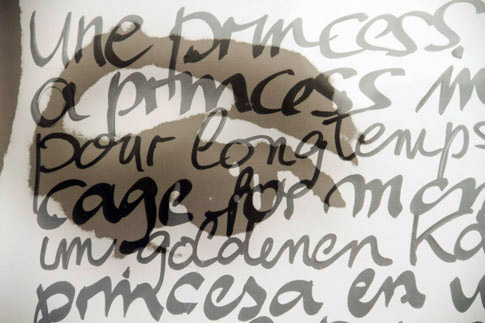 Une princess
a princess in
pour longtemps
cage for
im goldenen
princesa en